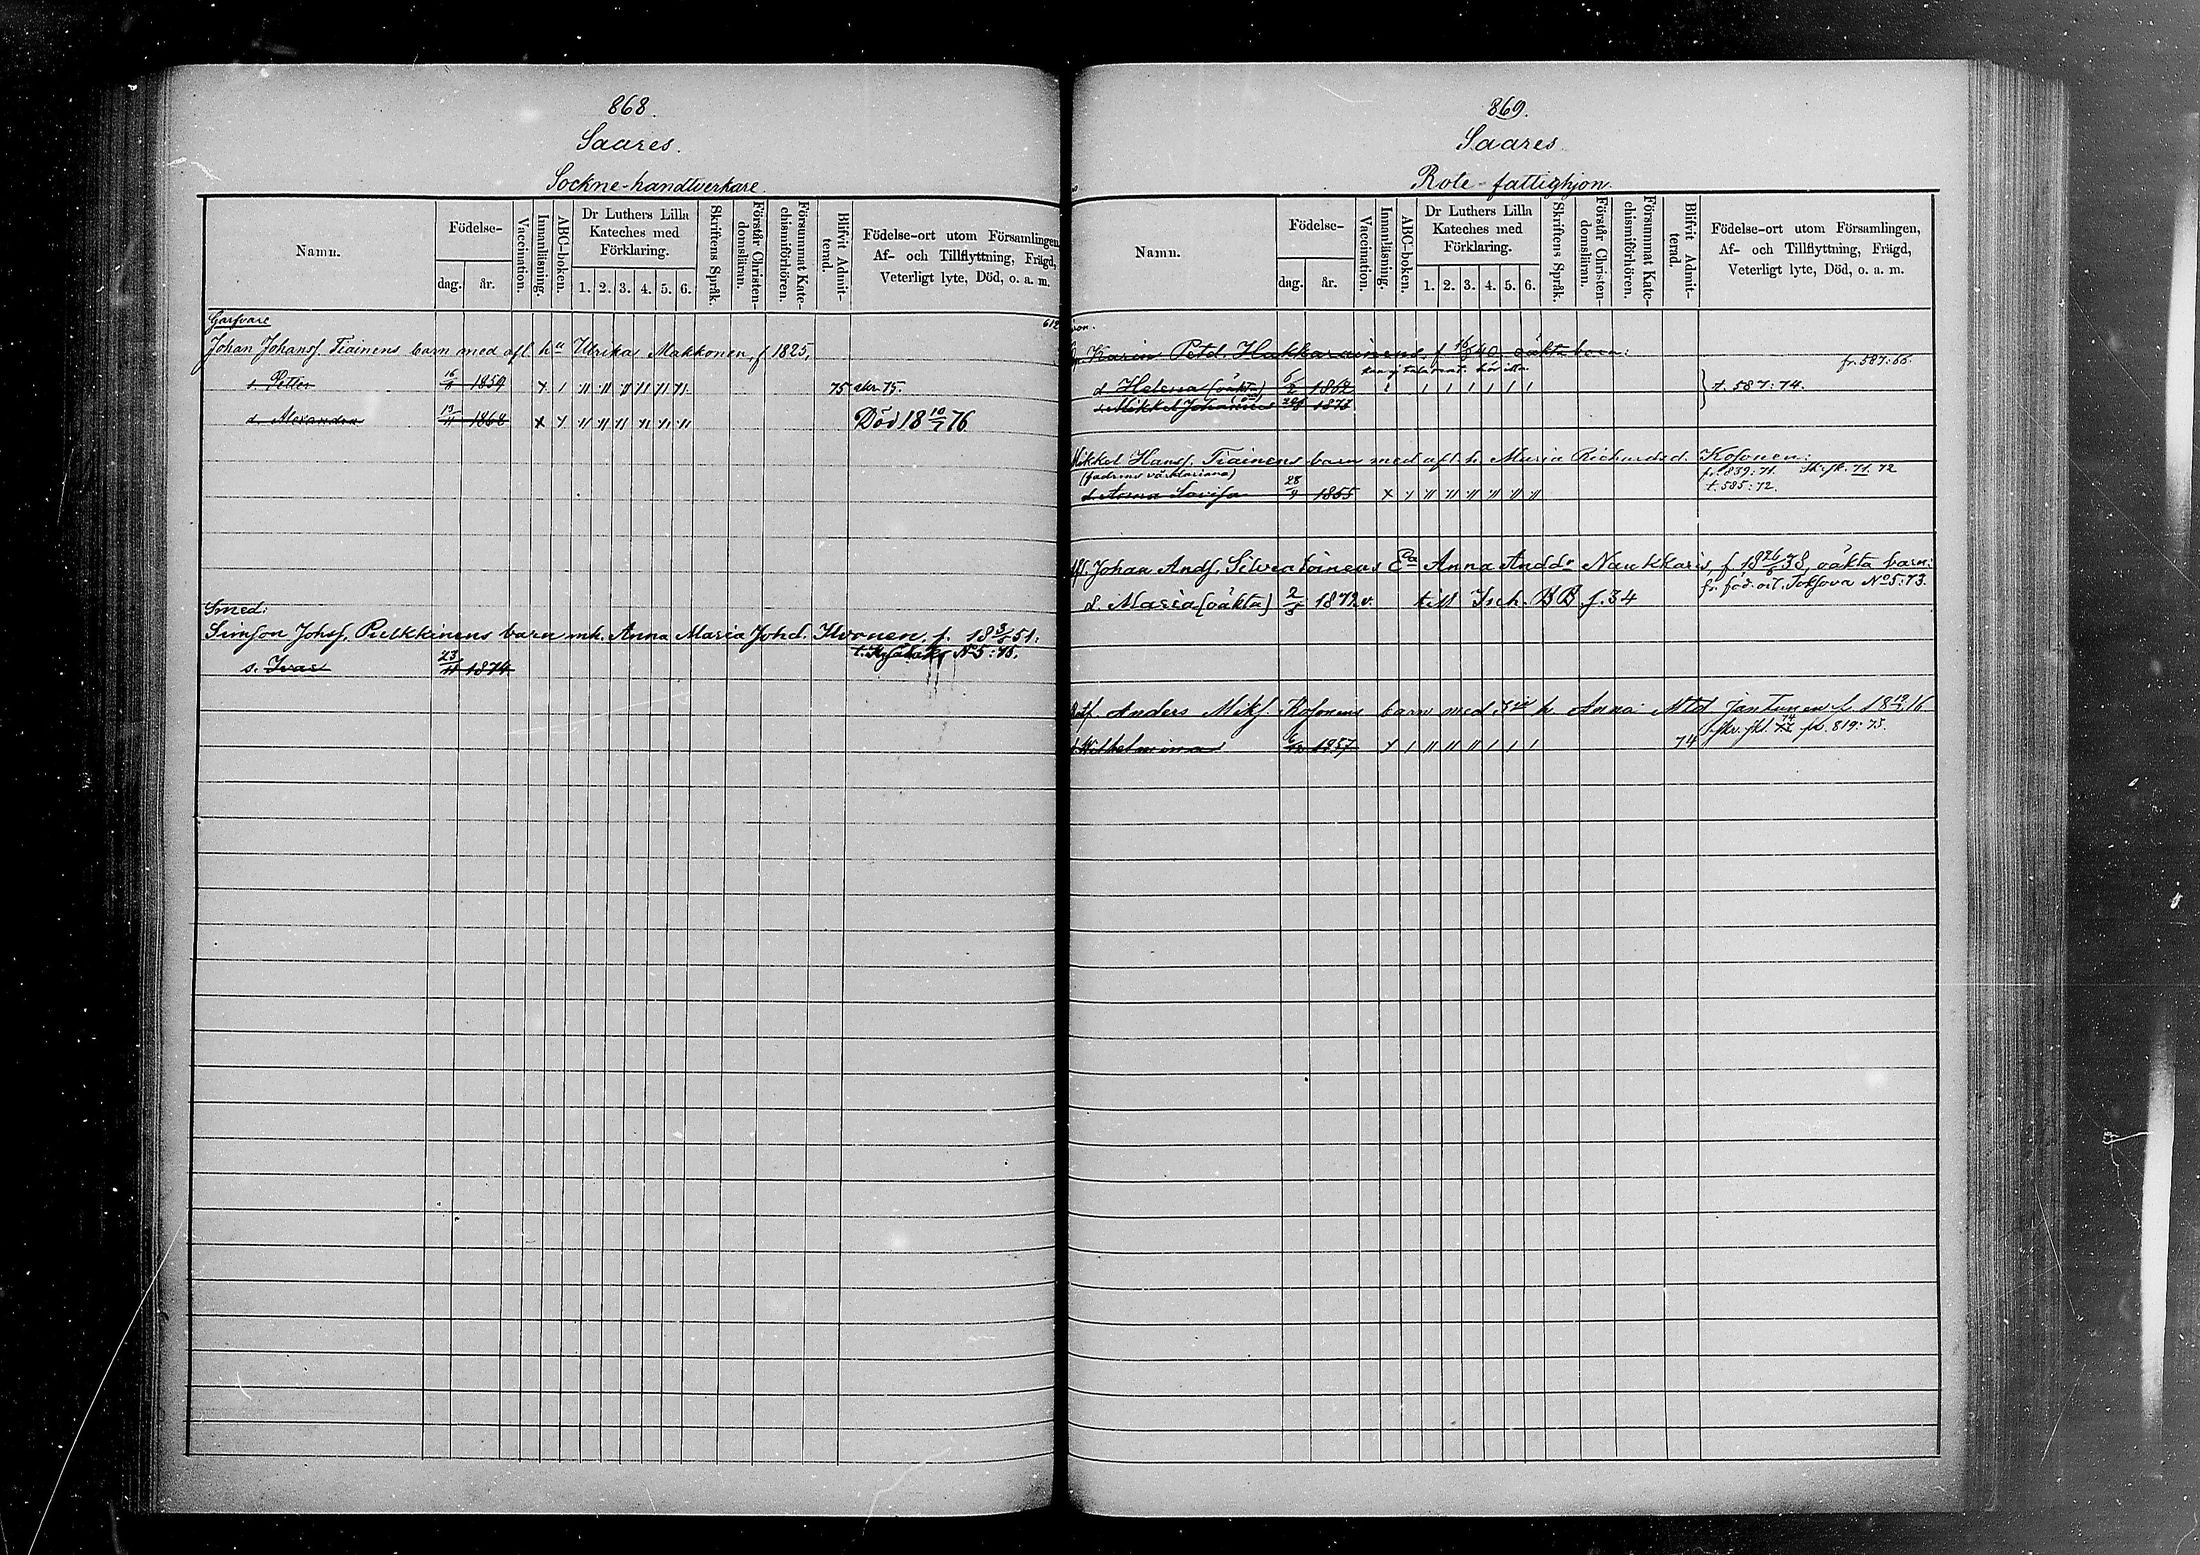 868.
Saares.
Sockne-handtverkare.
Namn.
Födelse-
dag.
år.
Vaccination.
Innanläsning.
ABC-boken.
Dr Luthers Lilla
Kateches med
Förklaring.
1. 2. 3. 4. 5. 6.
Skriftens Språk.
Förstår Christen-
domsläran.
Försummat Kate-
chismiförhören.
Blifvit Admit-
terad.
Födelse-ort utom Församlingen,
Af- och Tillflyttning, Frägd,
Veterligt lyte, Död, o. a. m.
Garfvare
Johan Johanss. Tiainens barn med afl. hu Ulrika Makkonen, f 1825,
s. Petter 16/4 1859 75 akr. 75.
d. Alexandra 19/11 1868 Död 18 10/7 76
Smed:
Simson Johss. Pulkkinens barn mh. Anna Maria Johd. Ihonen, f. 18 3/6 51.
s. Ivar 23/11 1874 No 5:76.
869.
Saares
Rote-fattighjon.
Namn.
Födelse-
dag.
år.
Vaccination.
Innanläsning.
ABC-boken.
Dr Luthers Lilla
Kateches med
Förklaring.
1. 2. 3. 4. 5. 6.
Skriftens Språk.
Förstår Christen-
domsläran.
Försummat Kate-
chismiförhören.
Blifvit Admit-
terad.
Födelse-ort utom Församlingen,
Af- och Tillflyttning, Frägd,
Veterligt lyte, Död, o. a. m.
Karin Petd. Hakkarainens, f 16/8 40, oäkta barn:
fr. 587:66.
d Helena (oäkta) 6/2 1862 t. 587:74.
s. Mikkel Johannes 1873
Mikkel Hanss. Tiainens barn med afl. h. Maria Richardsd. Kosonen:
fr. 839:71. 71. 72
d. Anna Lovisa 28/9 1855 t. 585:72.
Johan Ands. Silventoinens Ea Anna Andd. Naukkaris, f 18 26/6 38, oäkta barn:
fr. föd. ort. Toksova No 5:73.
d. Maria (oäkta) 2/3 1872 v. till Isch. BB f. 34
Anders Miks. Kosonens barn med h. Anna Mtd Jantunen f. 18 16
819:75.
d. Wilhelmina 1857 74